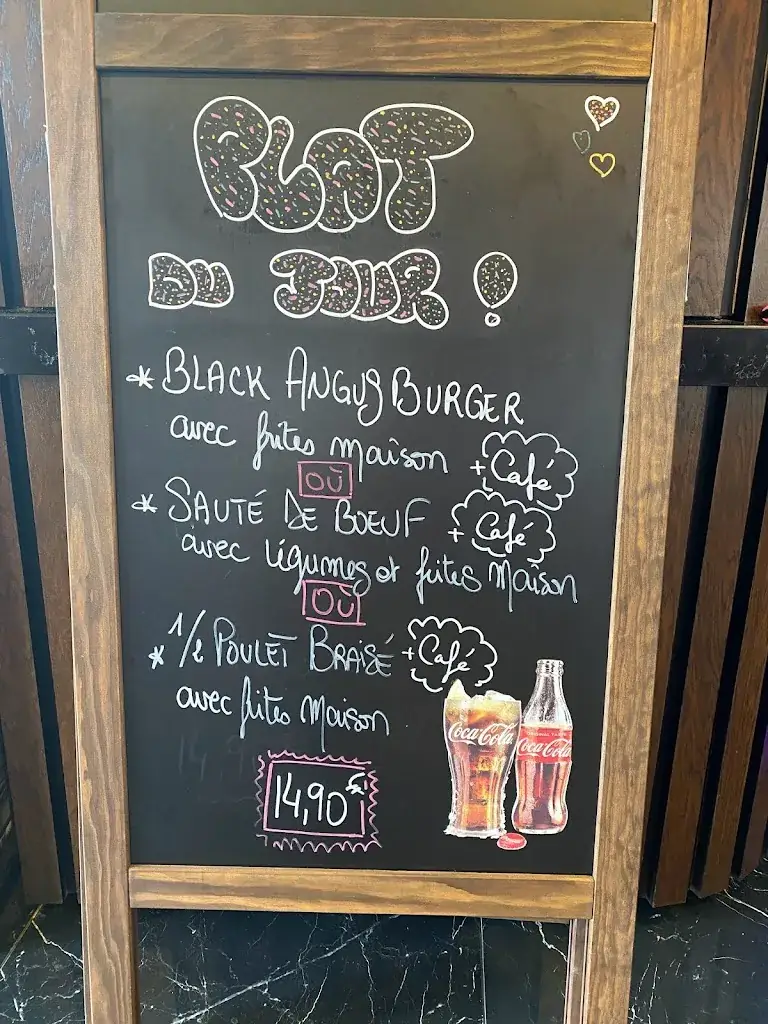 PLAT
DU JOUR !
* BLACK ANGUS BURGER
avec frites maison + Café
OÙ
* SAUTÉ DE BOEUF + Café
avec légumes et frites maison
OÙ
* 1/2 POULET BRAISÉ + Café
avec frites maison
14,90€
Coca-Cola
Coca-Cola